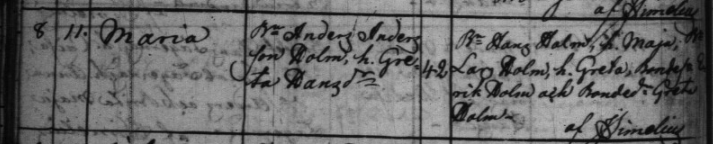 af Himelius
8 11. Maria
Bn Anders Anders
son Holm, h. Gre-
ta Hansdr
42
Bn Hans Holm, h. Maja,
Lars Holm, h. Greta,
rik Holm och Bonded. Greta
Holm
af Himelius